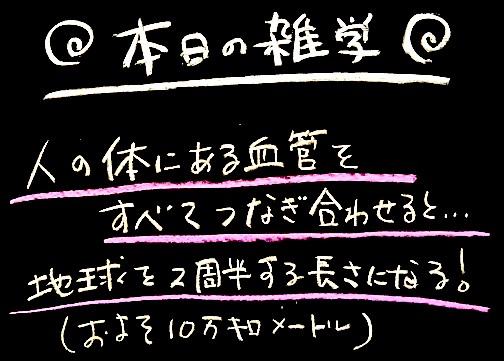 本日の雑学
人の体にある血管を
すべてつなぎ合わせると…
地球を2周半する長さになる!
(およそ10万キロメートル)